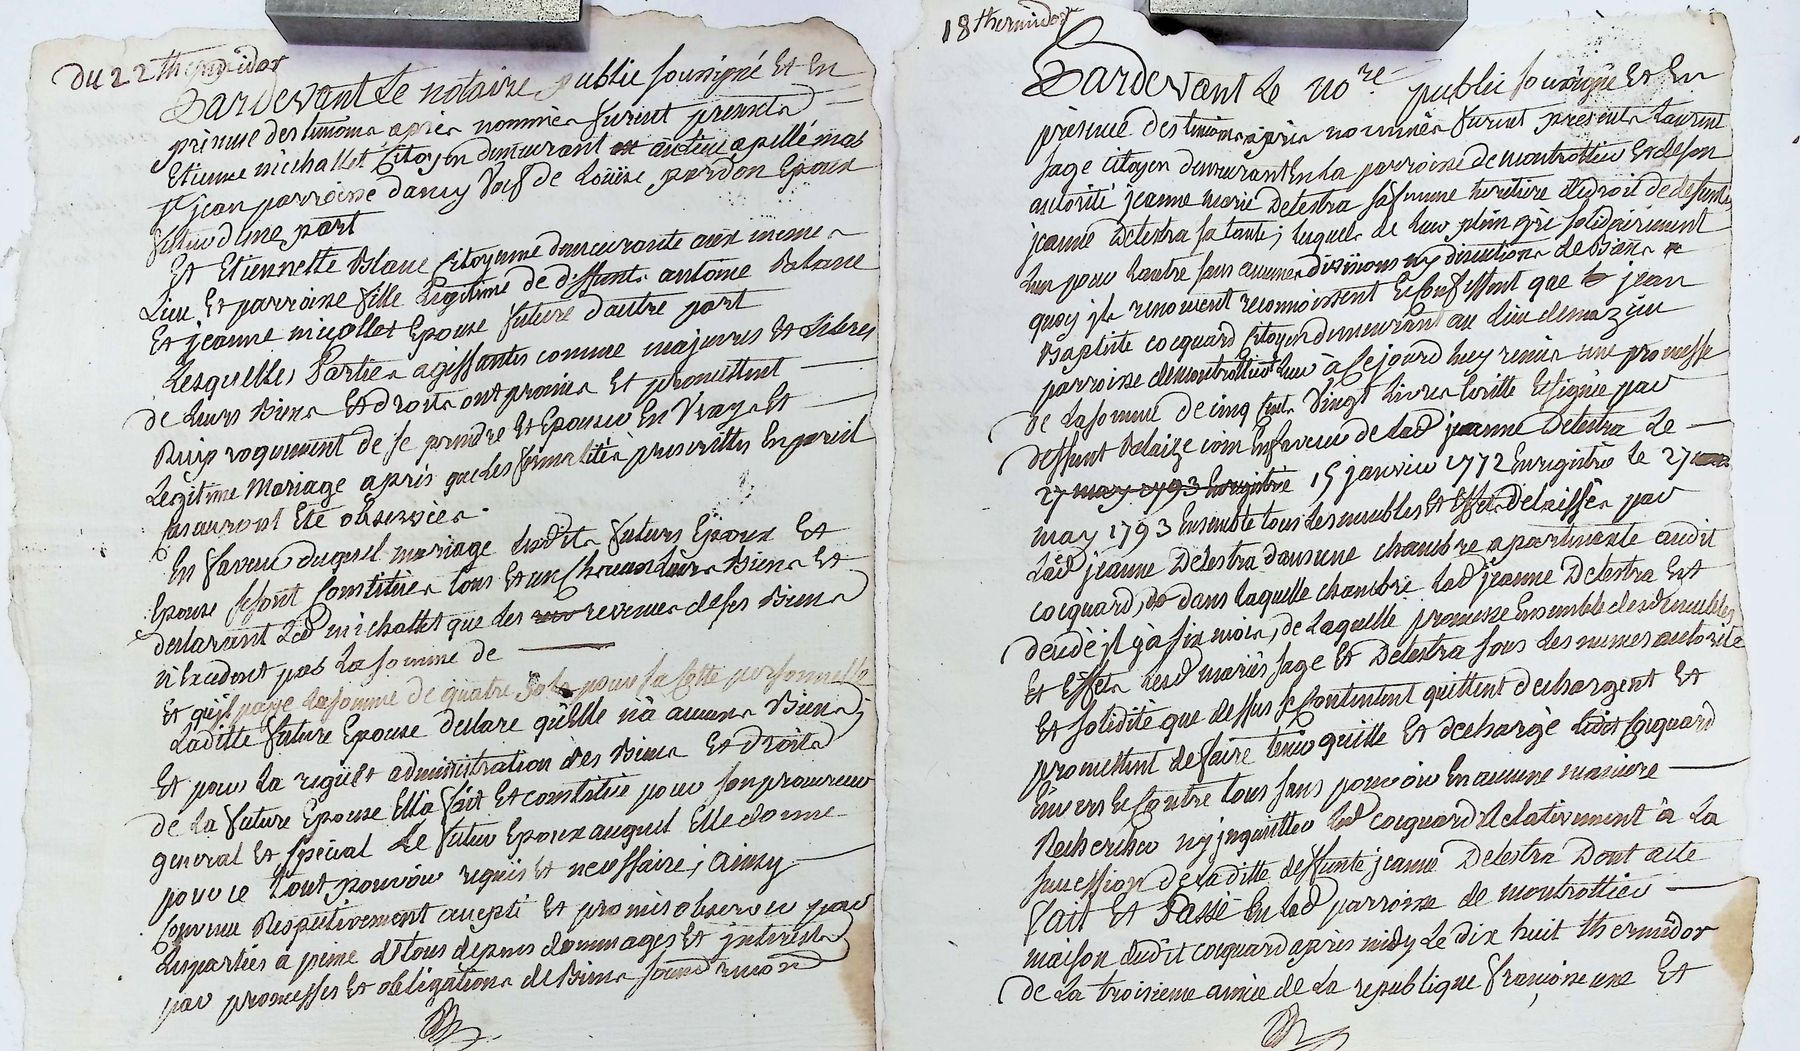 du 22 thermidor
Pardevant le notaire public soussigné et en
presence des temoins après nommés furent presents
Etienne michallet Citoyen demeurant au lieu apellé mas
st jean parroisse dancy veuf de Louise perdon Epoux
futur dune part
Et Etiennette Blanc Citoyenne demeurante aux memes
Lieu Et parroisse fille Legitime de deffunts antoine Blanc
Et jeanne micollet Epouse future dautre part
Lesquelles Parties agissantes comme majeures Et Libres
de Leurs Biens Et droits ont promis Et promettent
Reciproquement de se prendre Et Epouser En vray Et
Legitime Mariage après que les formalités prescrittes En pareil
cas auront Eté observées
En faveur duquel mariage Lesdits futurs Epoux Et
Epouse se sont Constitués tous Et un Chacun Leurs Biens Et
declarant Led michallet que les revenus de ses Biens
n'Excedent pas La somme de
Et qu'il paye La somme de quatre sols pour sa Cotte personnelle
Laditte future Epouse declare qu'Elle n'a aucuns Biens,
Et pour La regie Et administration des Biens Et droits
de La future Epouse Ella fait Et constitué pour son procureur
general Et special Le futur Epoux auquel Elle donne
pour ce tout pouvoir requis Et necessaire; ainsy
Convenu Respectivement accepté Et promis observer par
Les parties a peine de tous depens dommages Et interests
par promesses Et obligations de Biens soumission
18 thermidor
Pardevant Le nore public soussigné Et En
presence des temoins après nommés furent presents Laurent
sage citoyen demeurant En La parroisse de montrottier Et de son
autorité jeanne marie Delestra sa femme heritiere de droit de deffunte
jeanne Delestra sa tante; lesquels de leur plein gré solidairement
L'un pour Lautre sans aucunes divisions ny discutions de Biens a
quoy ils renoncent reconnoissent Et confessent que jean
Baptiste cocquard Citoyen demeurant au lieu de mazieu
parroisse de montrottier Leur à Cejourd'huy remis une promesse
de La somme de cinq Cents vingt Livres Ecritte Et signée par
deffunt Blaize coin En faveur de Lad jeanne Delestra Le
27 may 1793 Enregistré 15 janvier 1772 Enregistrée le 27
may 1793 Ensemble tous Les meubles Et Effets delaissés par
Lad jeanne Delestra dans une chambre apartenante audit
cocquard, dans laquelle chambre Lad jeanne Delestra Est
decedé il y à six mois, de Laquelle promesse Ensemble desd meubles
Et Effets Lesd mariés sage Et Delestra sous Les mêmes autorité
Et solidité que dessus se Contentent quittent dechargent Et
promettent de faire tenir quitte Et dechargé Ledit Cocquard
Envers Et Contre tous sans pouvoir En aucune maniere
Rechercher ny inquietter Led cocquard Relativement à La
succession de Laditte deffunte jeanne Delestra Dont acte
fait Et Passé En Lad parroisse de montrottier
maison dudit cocquard après midy Le dix huit thermidor
de La troisieme année de La republique françoise une Et